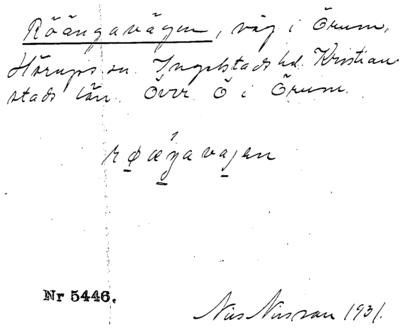 Röängavägen, väg i Örum,
Hörups sn. Ingelstads hd. Kristian-
stads län. Övre Ö i Örum.
røæŋavagan
Nr 5446.
Nils Nilsson 1931.